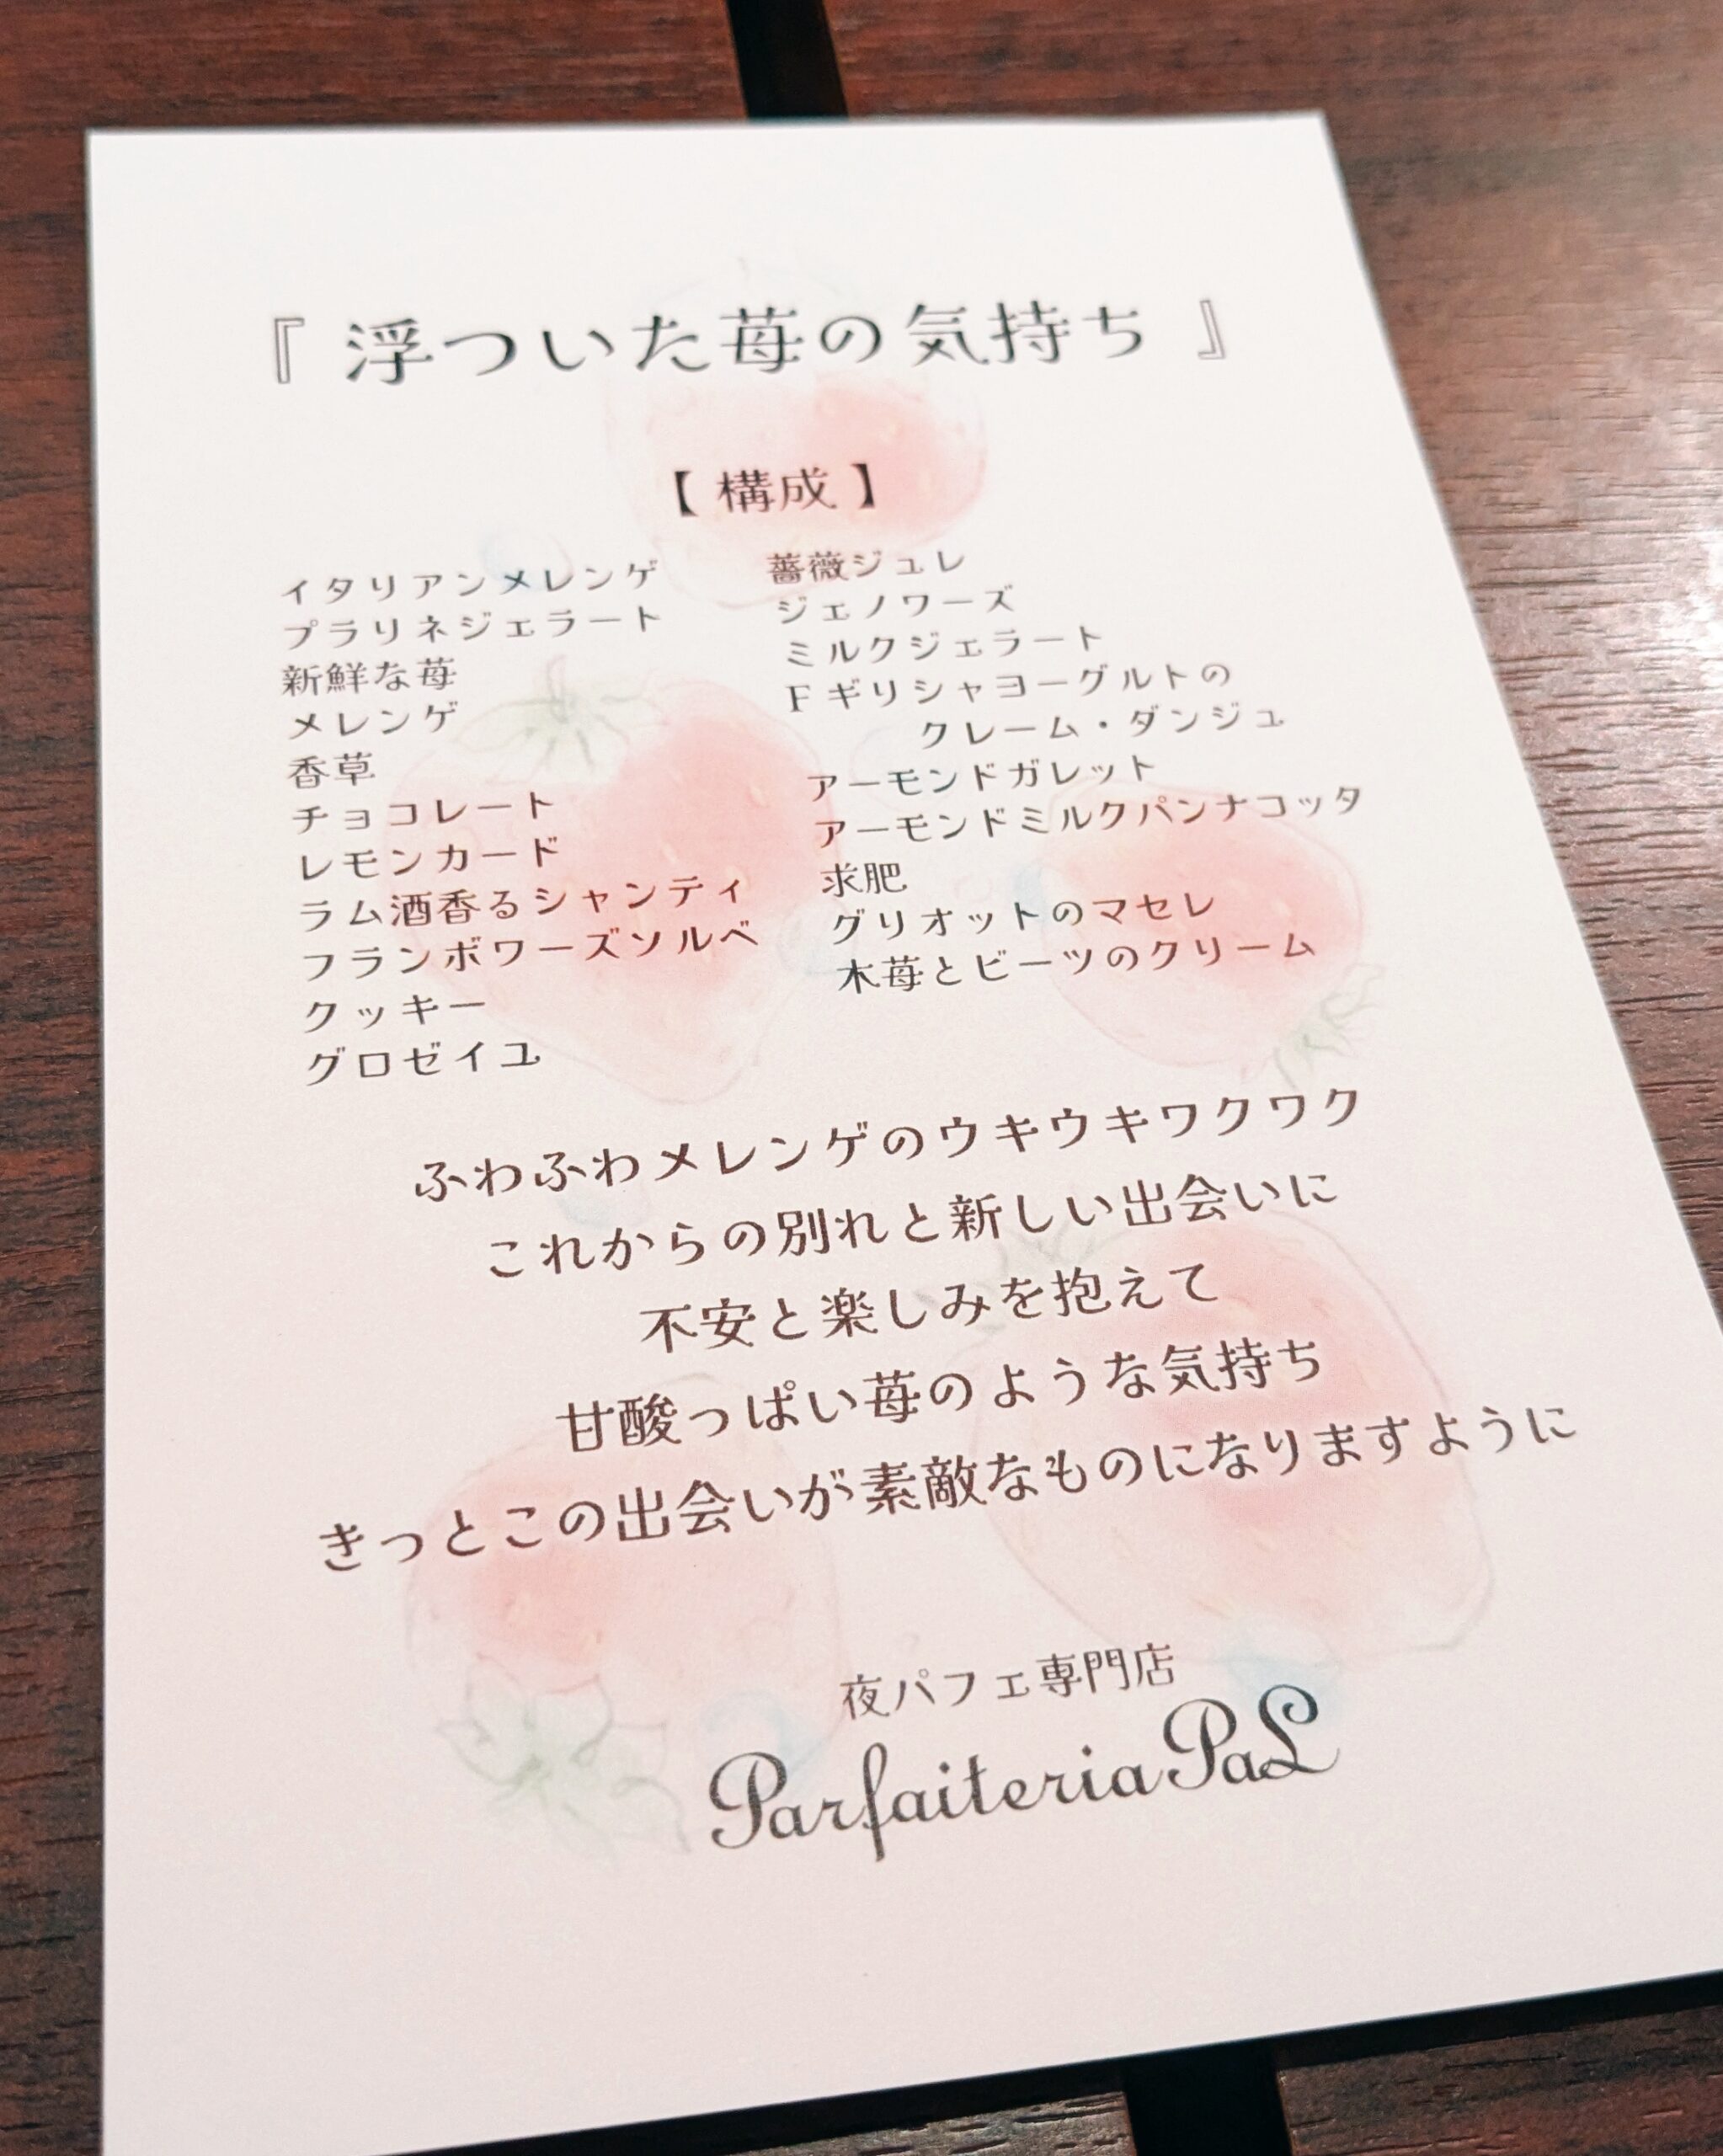 『 浮ついた苺の気持ち 』
【 構成 】
イタリアンメレンゲ
プラリネジェラート
新鮮な苺
メレンゲ
香草
チョコレート
レモンカード
ラム酒香るシャンティ
フランボワーズソルベ
クッキー
グロゼイユ
薔薇ジュレ
ジェノワーズ
ミルクジェラート
Fギリシャヨーグルトの
クレーム・ダンジュ
アーモンドガレット
アーモンドミルクパンナコッタ
求肥
グリオットのマセレ
木苺とビーツのクリーム
ふわふわメレンゲのウキウキワクワク
これからの別れと新しい出会いに
不安と楽しみを抱えて
甘酸っぱい苺のような気持ち
きっとこの出会いが素敵なものになりますように
夜パフェ専門店
Parfaiteria PaL